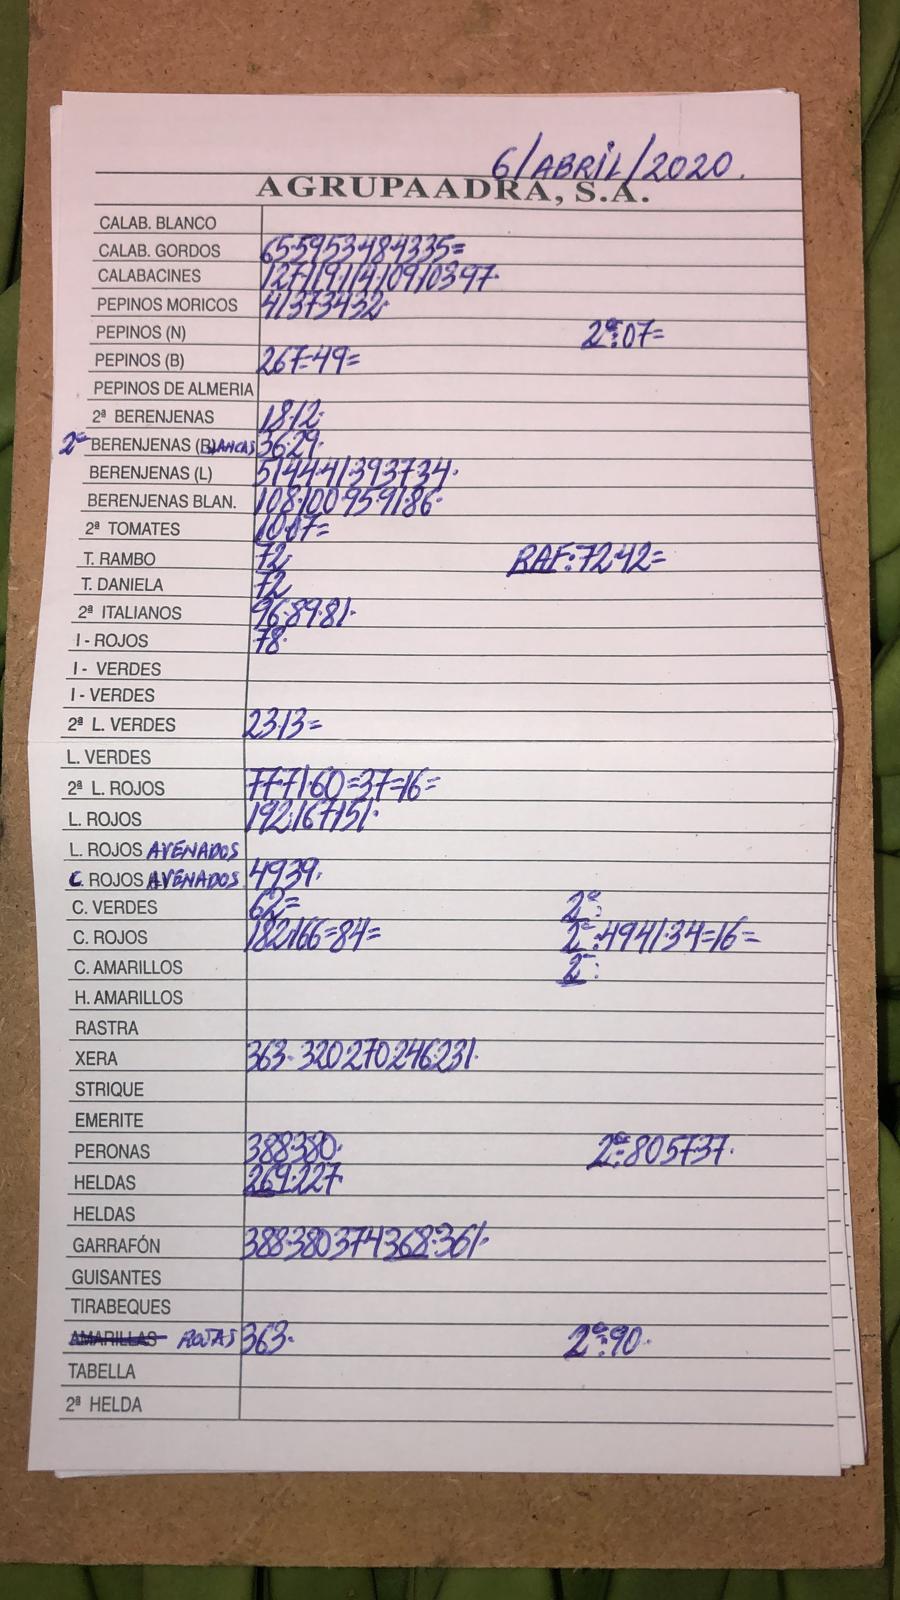 6/ABRIL/2020.
AGRUPAADRA, S.A.
CALAB. BLANCO
CALAB. GORDOS 65·59·53·48·43·35=
CALABACINES 127·119·114·109·103·97·
PEPINOS MORICOS 41·37·34·32·
PEPINOS (N) 2ª:07=
PEPINOS (B) 267=49=
PEPINOS DE ALMERIA
2ª BERENJENAS 18·12·
2ª BERENJENAS (BLANCAS 36·29·
BERENJENAS (L) 51·44·41·39·37·34·
BERENJENAS BLAN. 108·100·95·91·86·
2ª TOMATES 10·07=
T. RAMBO 72· RAF:72·42=
T. DANIELA 72
2ª ITALIANOS 96·89·81·
I - ROJOS 78·
I - VERDES
I - VERDES
2ª L. VERDES 23·13=
L. VERDES
2ª L. ROJOS 77·71·60=37=16=
L. ROJOS 192·167·151·
L. ROJOS AVENADOS
C. ROJOS AVENADOS 49·39·
C. VERDES 62= 2ª:
C. ROJOS 182·166=84= 2ª:49·41·34=16=
C. AMARILLOS 2ª:
H. AMARILLOS
RASTRA
XERA 363·320·270·246·231·
STRIQUE
EMERITE
PERONAS 388·380· 2ª:80·57·37·
HELDAS 269·227·
HELDAS
GARRAFÓN 388·380·374·368·361·
GUISANTES
TIRABEQUES
AMARILLAS ROJAS 363· 2ª:90·
TABELLA
2ª HELDA